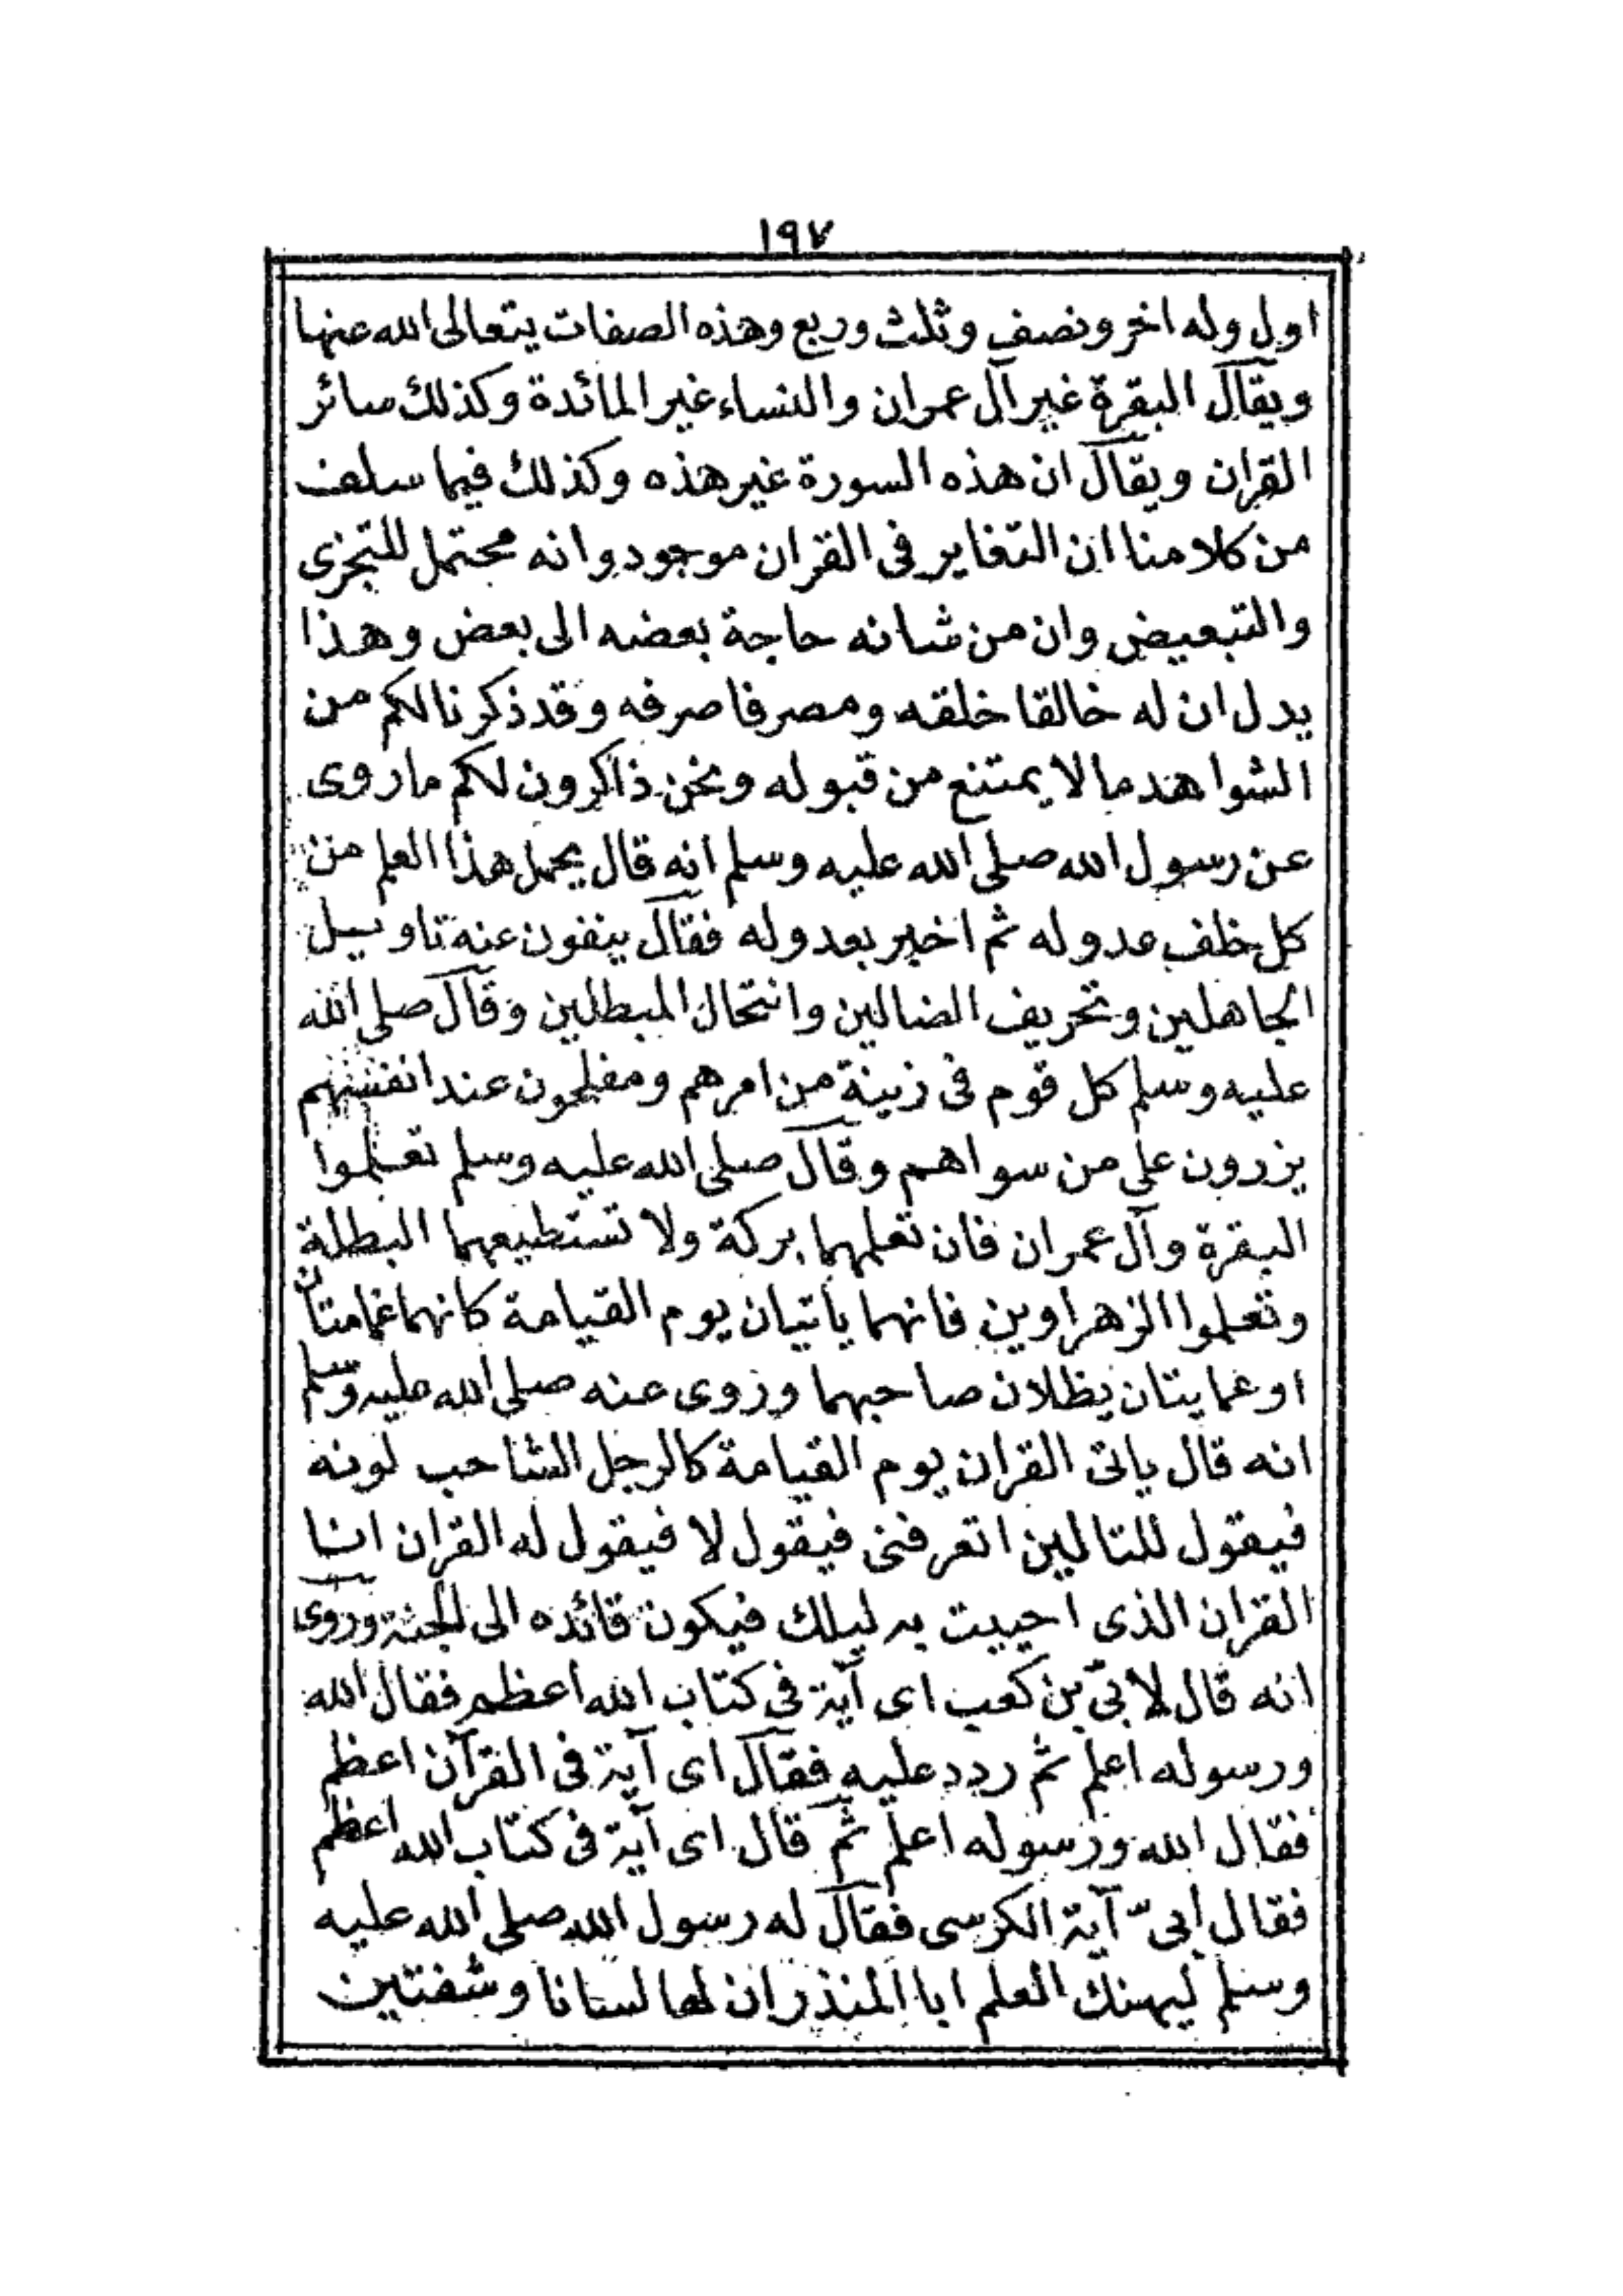 ١٩٧
اول وله اخر ونصف وثلث وربع وهذه الصفات يتعالى الله عنها
ويقال البقرة غير آل عمران والنساء غير المائدة وكذلك سائر
القران ويقال ان هذه السورة غير هذه وكذلك فيما سلف
من كلامنا ان التغاير فى القران موجود وانه محتمل للتجزى
والتبعيض وان من شانه حاجة بعضه الى بعض وهذا
يدل ان له خالقا خلقه ومصرفا صرفه وقد ذكرنا لكم من
الشواهد ما لا يمتنع من قبوله ونحن ذاكرون لكم ما روى
عن رسول الله صلى الله عليه وسلم انه قال يحمل هذا العلم من
كل خلف عدوله ثم اخبر بعدوله فقال ينفون عنه تاويل
الجاهلين وتحريف الضالين وانتحال المبطلين وقال صلى الله
عليه وسلم كل قوم فى زينة من امرهم ومفلحون عند انفسهم
يزرون على من سواهم وقال صلى الله عليه وسلم تعلموا
البقرة وآل عمران فان تعلمهما بركة ولا تستطيعهما البطلة
وتعلموا الزهراوين فانهما ياتيان يوم القيامة كانهما غمامتان
او غمايتان يظلان صاحبهما وروى عنه صلى الله عليه وسلم
انه قال ياتى القران يوم القيامة كالرجل الشاحب لونه
فيقول للتالين اتعرفنى فيقول لا فيقول له القران انا
القران الذى احييت به ليلك فيكون قائده الى الجنة وروى
انه قال لابىّ بن كعب اى آية فى كتاب الله اعظم فقال الله
ورسوله اعلم ثم ردد عليه فقال اى آية فى القرآن اعظم
فقال الله ورسوله اعلم ثم قال اى آية فى كتاب الله اعظم
فقال ابىّ آية الكرسى فقال له رسول الله صلى الله عليه
وسلم ليهنك العلم ابا المنذر ان لها لسانا وشفتين